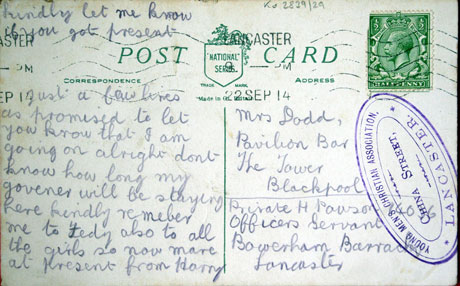 Ko 2829/29
Kindly let me know
if you got present
LANCASTER
LANCASTER
POST CARD
"NATIONAL"
SERIES
TRADE MARK
CORRESPONDENCE
ADDRESS
Made in Gt. Britain
22 SEP 14
HALFPENNY
Just a few lines
as promised to let
you know that I am
going on alright dont
know how long my
govener will be staying
here kindly remeber
me to tedy also to all
the girls so now more
at present from Harry
Mrs Dodd,
Pavilion Bar
The Tower
Blackpool
Private H Pawson
Officers Servant
Bowerham Barrack
Lancaster
YOUNG MEN'S CHRISTIAN ASSOCIATION,
CHINA STREET,
LANCASTER.